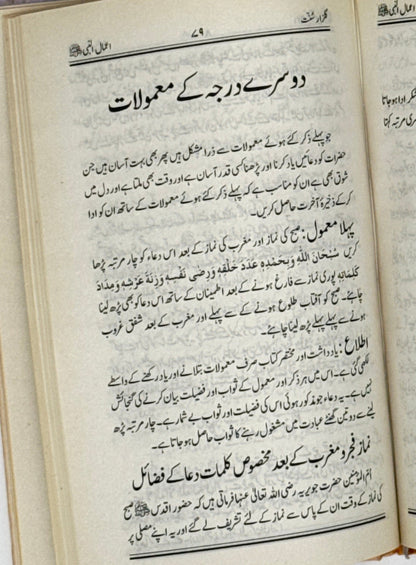 گلزار سنّت
۷۹
اعمال النبی ﷺ
دوسرے درجہ کے معمولات
جو پہلے ذکر کئے ہوئے معمولات سے ذرا مشکل ہیں پھر بھی بہت آسان ہیں جن
حضرت کو دعائیں یاد کرنا اور پڑھنا کسی قدر آسان ہے اور وقت بھی ملتا ہے اور دل میں
شوق بھی ہے ان کو مناسب ہے کہ پہلے ذکر کئے ہوئے معمولات کے ساتھ ان کو ادا
کر کے ذخیرۂ آخرت حاصل کریں۔
پہلا معمول : صبح کی نماز اور مغرب کی نماز کے بعد اس دعاء کو چار مرتبہ پڑھا
کریں سُبْحَانَ اللّٰهِ وَبِحَمْدِهٖ عَدَدَ خَلْقِهٖ وَرِضٰی نَفْسِهٖ وَزِنَةَ عَرْشِهٖ وَمِدَادَ
كَلِمَاتِهٖ پوری نماز سے فارغ ہونے کے بعد اطمینان کے ساتھ اس دعا کو بھی پڑھ لینا
چاہئے۔ صبح کو آفتاب طلوع ہونے کے سے پہلے اور مغرب کے بعد شفق غروب
ہونے سے پہلے پہلے پڑھ لینا چاہئے۔
اطلاع : یادداشت اور مختصر کتاب صرف معمولات بتلانے اور یاد رکھنے کے واسطے
لکھی گئی ہے۔ اس میں ہر ذکر اور معمول کے ثواب اور فضیلت بیان کرنے کی گنجائش
نہیں ہے۔ یہ دعاء جو مذکور ہوئی اس کی فضیلت اور ثواب بے شمار ہے۔ چار مرتبہ پڑھ
لینے سے دو تین گھنٹے عبادت میں مشغول رہنے کا ثواب حاصل ہو جاتا ہے۔
نماز فجر و مغرب کے بعد مخصوص کلمات دعا کے فضائل
ام المؤمنین حضرت جویریہ رضی اللہ تعالیٰ عنہا فرماتی ہیں کہ حضور اقدس ﷺ صبح
کی نماز کے وقت ان کے پاس سے نماز کے لئے تشریف لے گئے اور یہ اپنے مصلی پر
اعمال النبی ﷺ
ادا ہو جاتا
مرتبہ کہنا